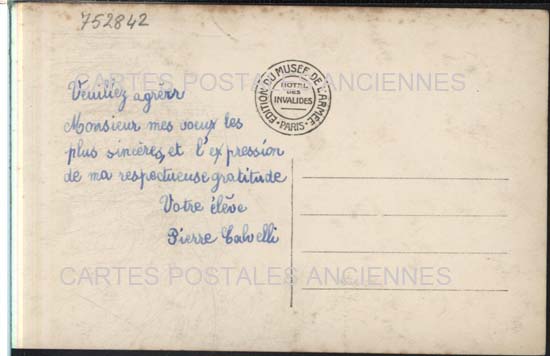 752842
CARTES POSTALES ANCIENNES
EDITION DU MUSÉE DE L'ARMÉE
HOTEL
DES
INVALIDES
• PARIS •
Veuillez agréer
Monsieur mes vœux les
plus sincères, et l'expression
de ma respectueuse gratitude
Votre élève
Pierre Calvelli
CARTES POSTALES ANCIENNES